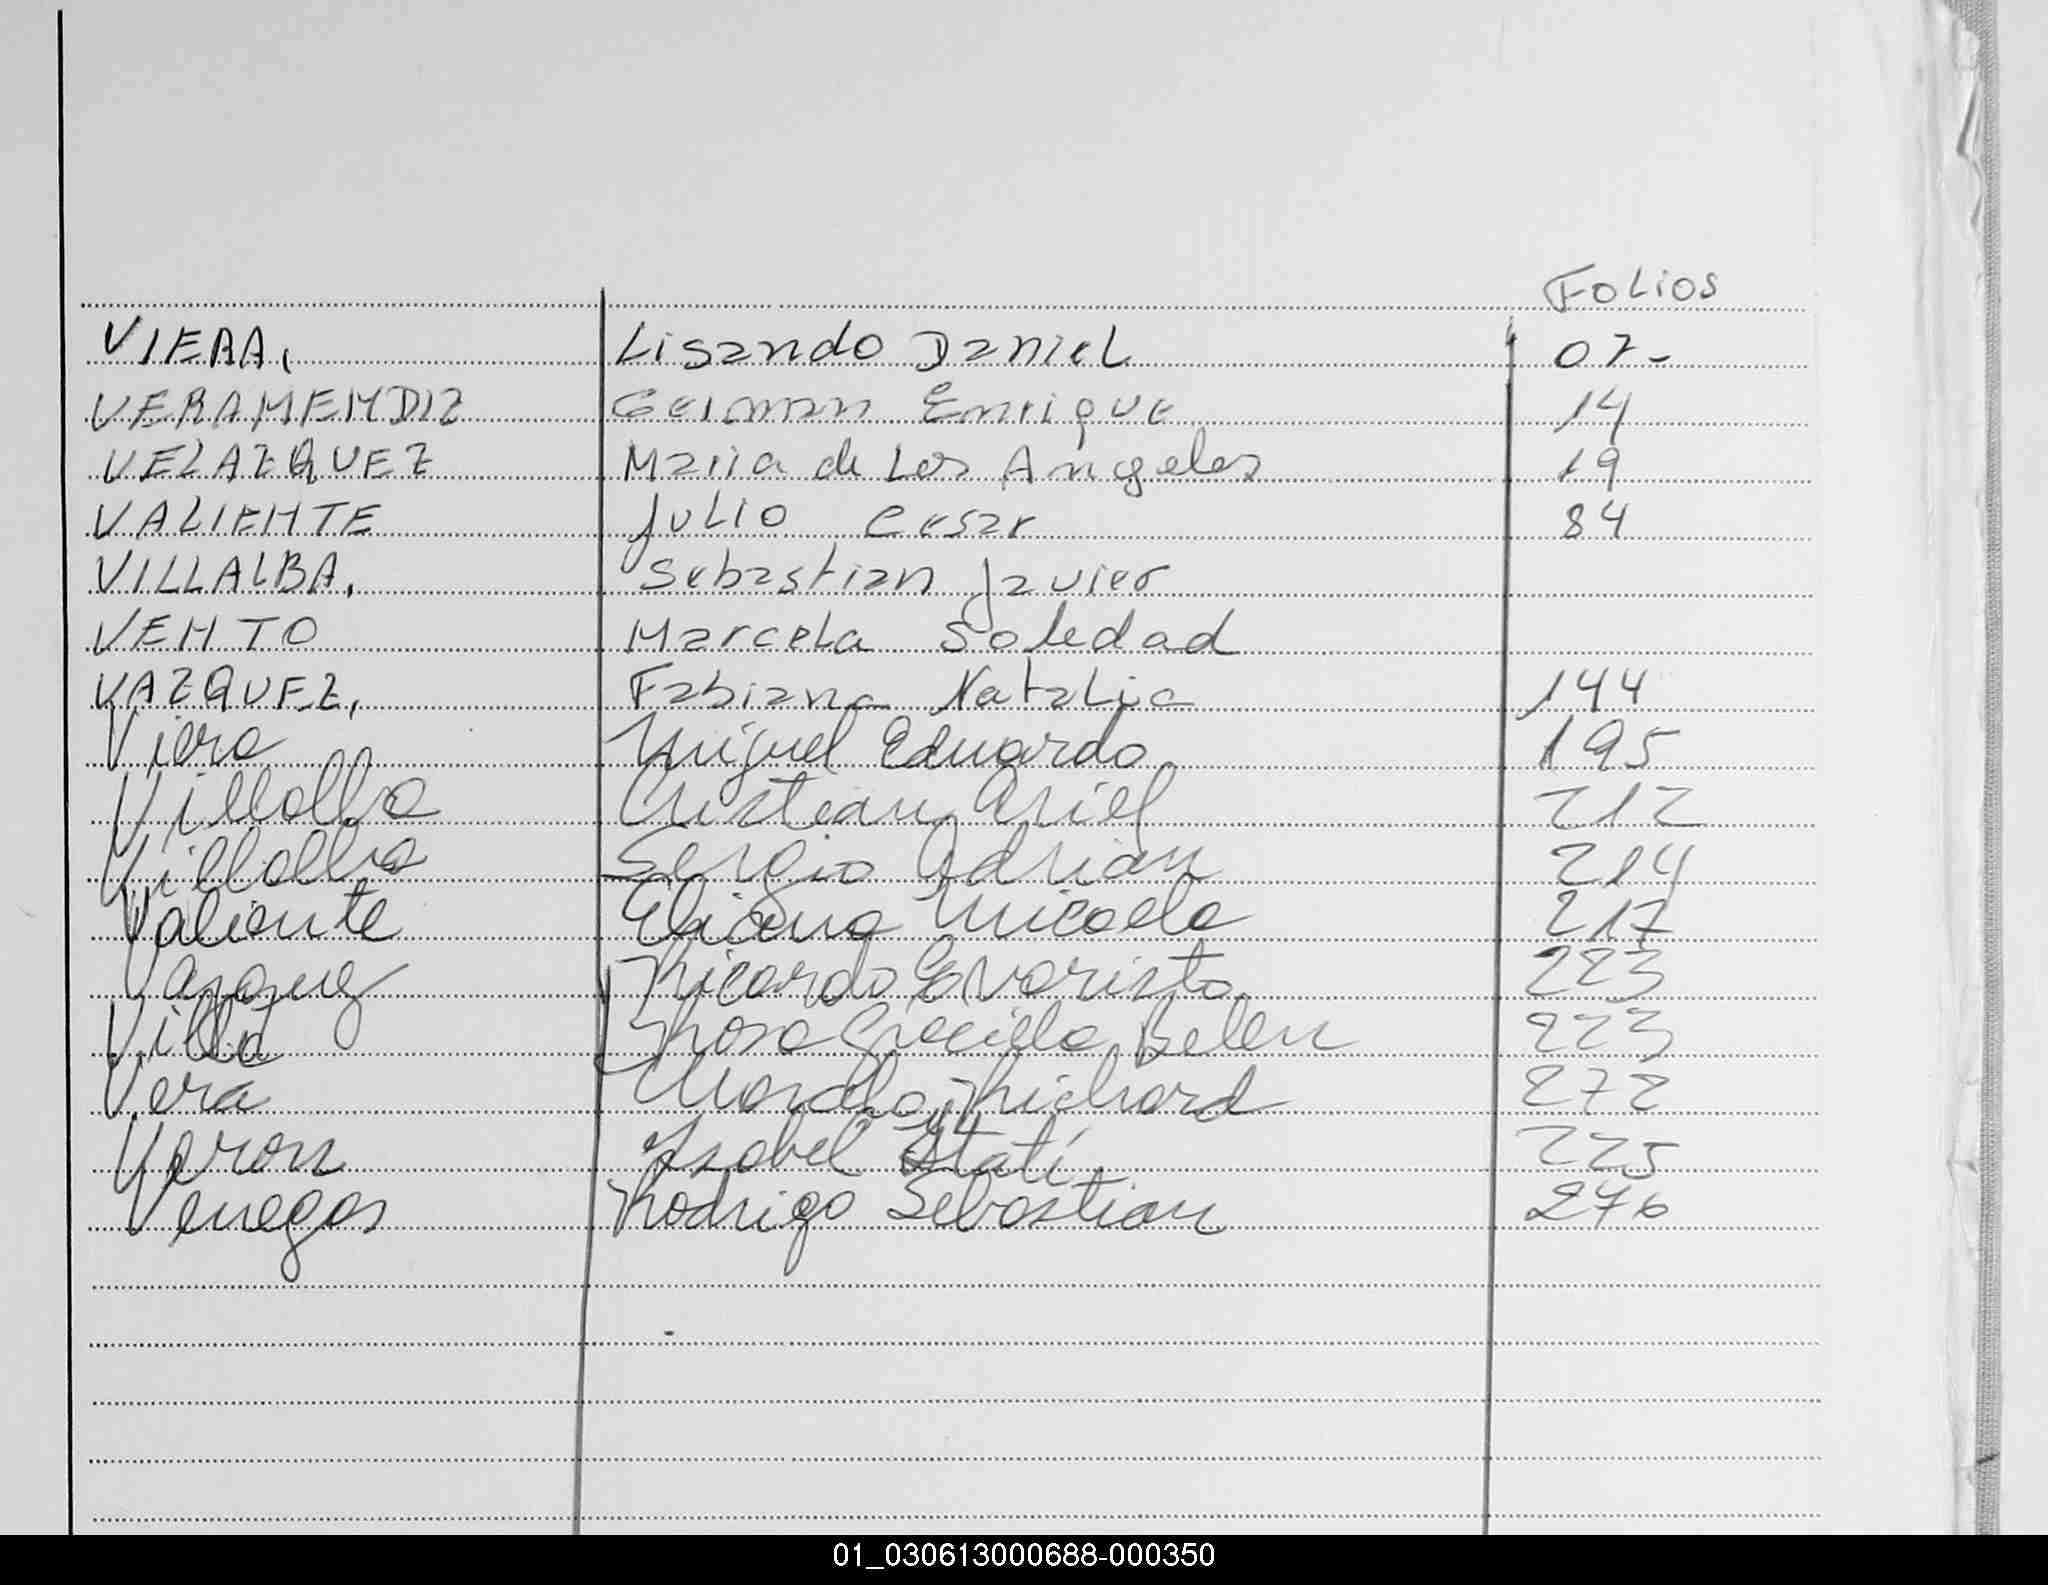 Folios
VIERA, Lisando Daniel 07-
VERAMENDIZ German Enrique 14
VELAZQUEZ Maria de Los Angeles 19
VALIENTE Julio Cesar 84
VILLALBA, Sebastian Javier
VENTO Marcela Soledad
VAZQUEZ, Fabiana Natalia 144
Viera Miguel Eduardo 195
Villalba Cristian Ariel 212
Villalba Sergio Adrian 214
Valiente Eliana Micaela 217
Vazquez Ricardo Evaristo 223
Villa Rosa Graciela Belen 223
Vera Marcelo Richard 272
Veron Isabel Itatí 225
Venegas Rodrigo Sebastian 276
01_030613000688-000350